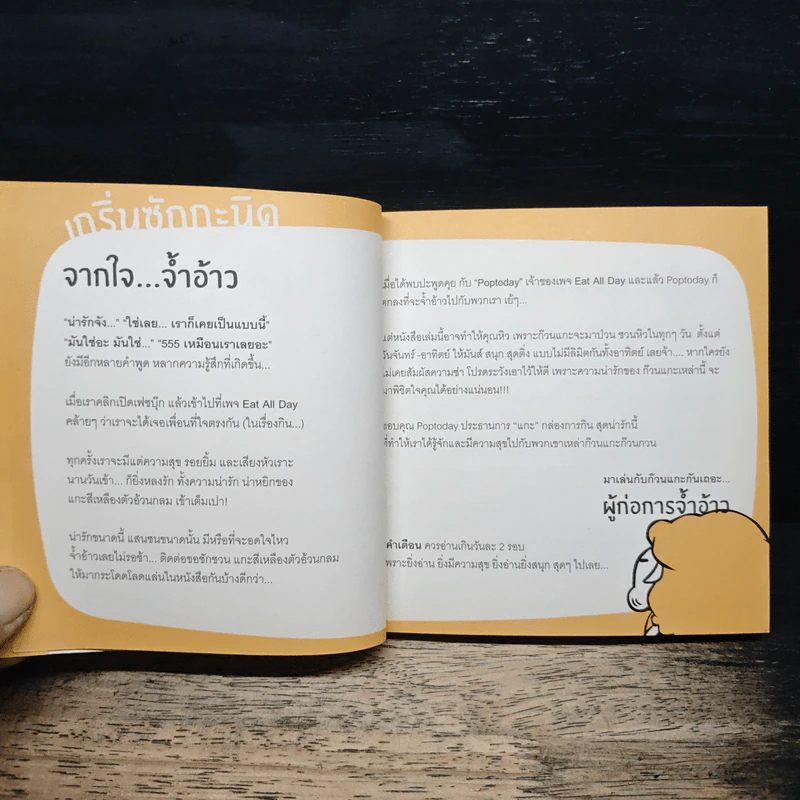 เกริ่นซักกะนิด
จากใจ...จ้ำอ้าว
“น่ารักจัง...” “ใช่เลย... เราก็เคยเป็นแบบนี้”
“มันใช่อะ มันใช่...” “555 เหมือนเราเลยอะ”
ยังมีอีกหลายคำพูด หลากความรู้สึกที่เกิดขึ้น...
เมื่อเราคลิกเปิดเฟซบุ๊ก แล้วเข้าไปที่เพจ Eat All Day
คล้ายๆ ว่าเราได้เจอเพื่อนที่ใจตรงกัน (ในเรื่องกิน...)
ทุกครั้งเราจะมีแต่ความสุข รอยยิ้ม และเสียงหัวเราะ
นานวันเข้า... ก็ยิ่งหลงรัก ทั้งความน่ารัก น่าหยิกของ
แกะสีเหลืองตัวอ้วนกลม เข้าเต็มเปา!
น่ารักขนาดนี้ แสนซนขนาดนั้น มีหรือที่จะอดใจไหว
จ้ำอ้าวเลยไม่รอช้า... ติดต่อขอชักชวน แกะสีเหลืองตัวอ้วนกลม
ให้มากระโดดโลดแล่นในหนังสือกันบ้างดีกว่า...
เมื่อได้พบปะพูดคุย กับ “Poptoday” เจ้าของเพจ Eat All Day และแล้ว Poptoday ก็
ตกลงที่จะจ้ำอ้าวไปกับพวกเรา เย้ๆ...
แต่หนังสือเล่มนี้อาจทำให้คุณหิว เพราะก๊วนแกะจะมาป่วน ชวนหิวในทุกๆ วัน ตั้งแต่
วันจันทร์ -อาทิตย์ ให้มันส์ สนุก สุดติ่ง แบบไม่มีลิมิตกันทั้งอาทิตย์ เลยจ้า.... หากใครยัง
ไม่เคยสัมผัสความซ่า โปรดระวังเอาไว้ให้ดี เพราะความน่ารักของ ก๊วนแกะเหล่านี้ จะ
มาพิชิตใจคุณได้อย่างแน่นอน!!!
ขอบคุณ Poptoday ประธานการ “แกะ” กล่องการกิน สุดน่ารักนี้
ที่ทำให้เราได้รู้จักและมีความสุขไปกับพวกเขาเหล่าก๊วนแกะก๊วนกวน
มาเล่นกับก๊วนแกะกันเถอะ...
ผู้ก่อการจ้ำอ้าว
คำเตือน ควรอ่านเกินวันละ 2 รอบ
เพราะยิ่งอ่าน ยิ่งมีความสุข ยิ่งอ่านยิ่งสนุก สุดๆ ไปเลย...